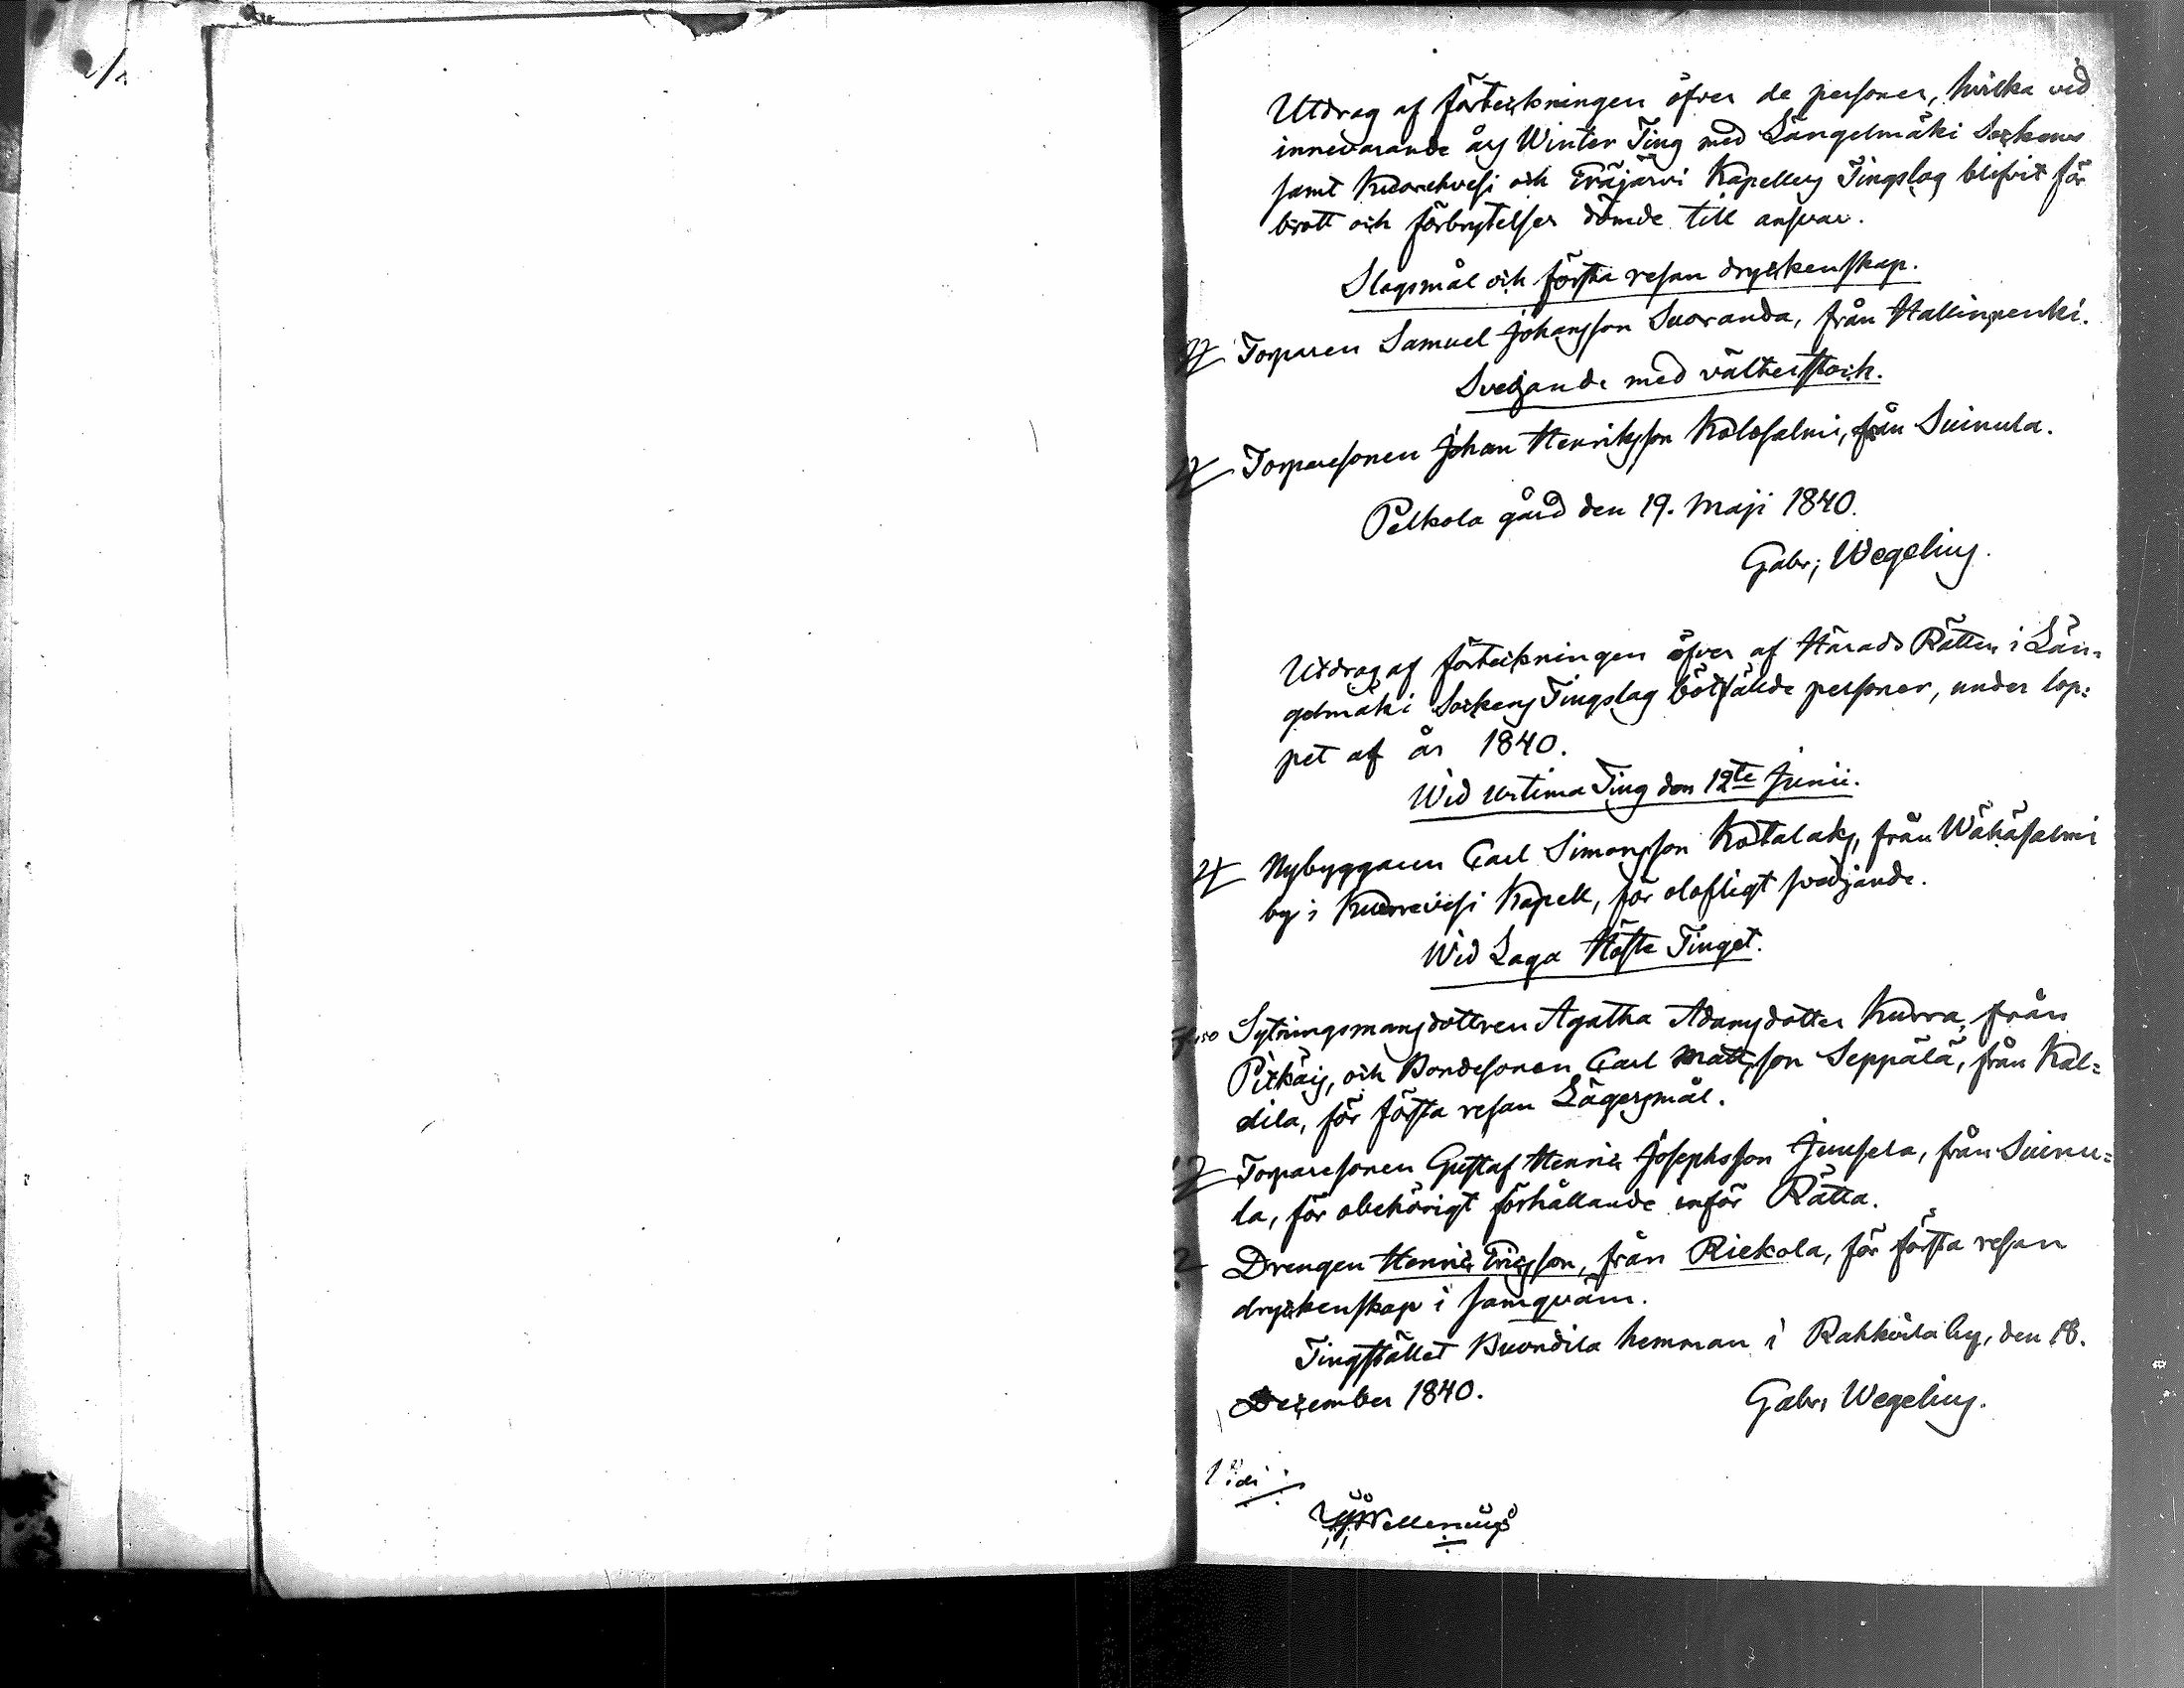 Utdrag af förteckningen öfver de personer, hvilka vid
innevarande års Winter Ting med Längelmäki Sockens
samt Kuorehvesi och Eräjärvi Kapellers Tingslag blifvit för
brott och förbrytelser dömde till ansvar.
Slagsmål och första resan dryckenskap.
Torparen Samuel Johansson Suoranda, från Hallinpenki.
Svedjande med välterstock.
Torparesonen Johan Henriksson Kolosalmi, från Suinula.
Pelkola gård den 19. Maji 1840.
Gabr; Wegelius.
Utdrag af förteckningen öfver af Härads Rätten i Län=
gelmäki Sockens Tingslag botfälde personer, under lop=
pet af år 1840.
Wid urtima Ting den 12te Junii.
Nybyggaren Carl Simonsson Kotalaks, från Wähäsalmi
by i Kuorevesi Kapell, för olofligt svedjande.
Wid Laga Höste Tinget.
Sytningsmansdottren Agatha Adamsdotter Kurra, från
Pitkäis, och Bondesonen Carl Mattsson Seppälä, från Kal=
dila, för första resan Lägersmål.
Torparesonen Gustaf Henric Josephsson Juusela, från Suinu=
la, för obehörigt förhållande inför Rätta.
Drengen Henric Ericsson, från Riekola, för första resan
dryckenskap i samqväm.
Tingstället Buondila hemman i Rahkoila by, den 18.
December 1840.
Gabr; Wegelius.
Vidi